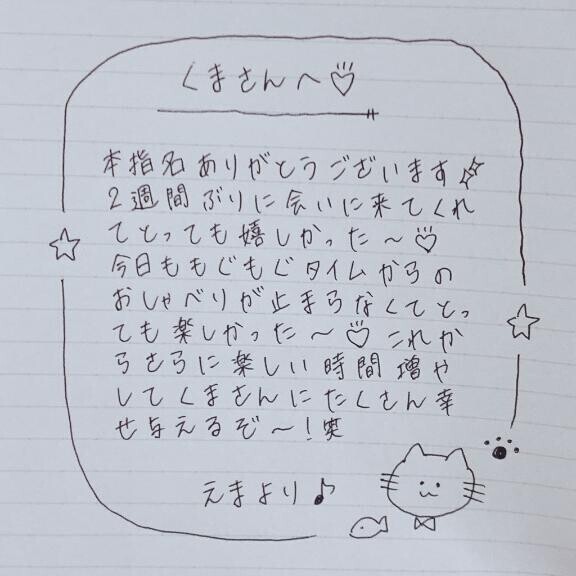 くまさんへ♡
本指名ありがとうございます
2週間ぶりに会いに来てくれ
てとっても嬉しかった〜♡
今日ももぐもぐタイムからの
おしゃべりが止まらなくてとっ
ても楽しかった〜♡これか
らさらに楽しい時間増や
してくまさんにたくさん幸
せ与えるぞ〜!笑
えまより♪